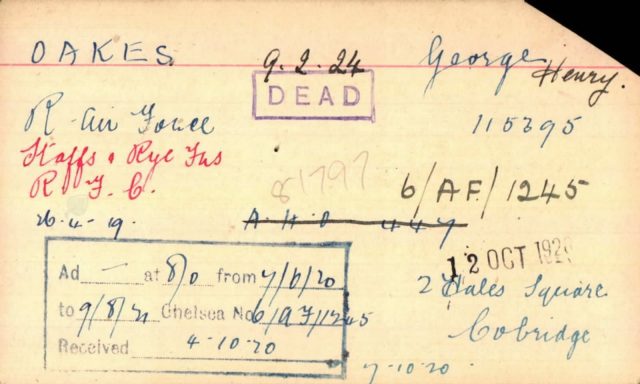 OAKES 9.2.24 George Henry.
DEAD
R. Air Force 115395
Staffs & Rye Fus
R. F. C. 81797 6/AF/1245
26-4-19. A.H.O 447
12 OCT 192
Ad — at 8/0 from 7/6/20
2 Hales Square
to 9/8/21 Chelsea No 6/AF/1245
Cobridge
Received 4-10-20
7-10-20